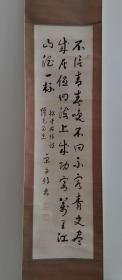 不信青春喚不回不容青史盡
成灰低回海上成功宴萬里江
山酒一杯